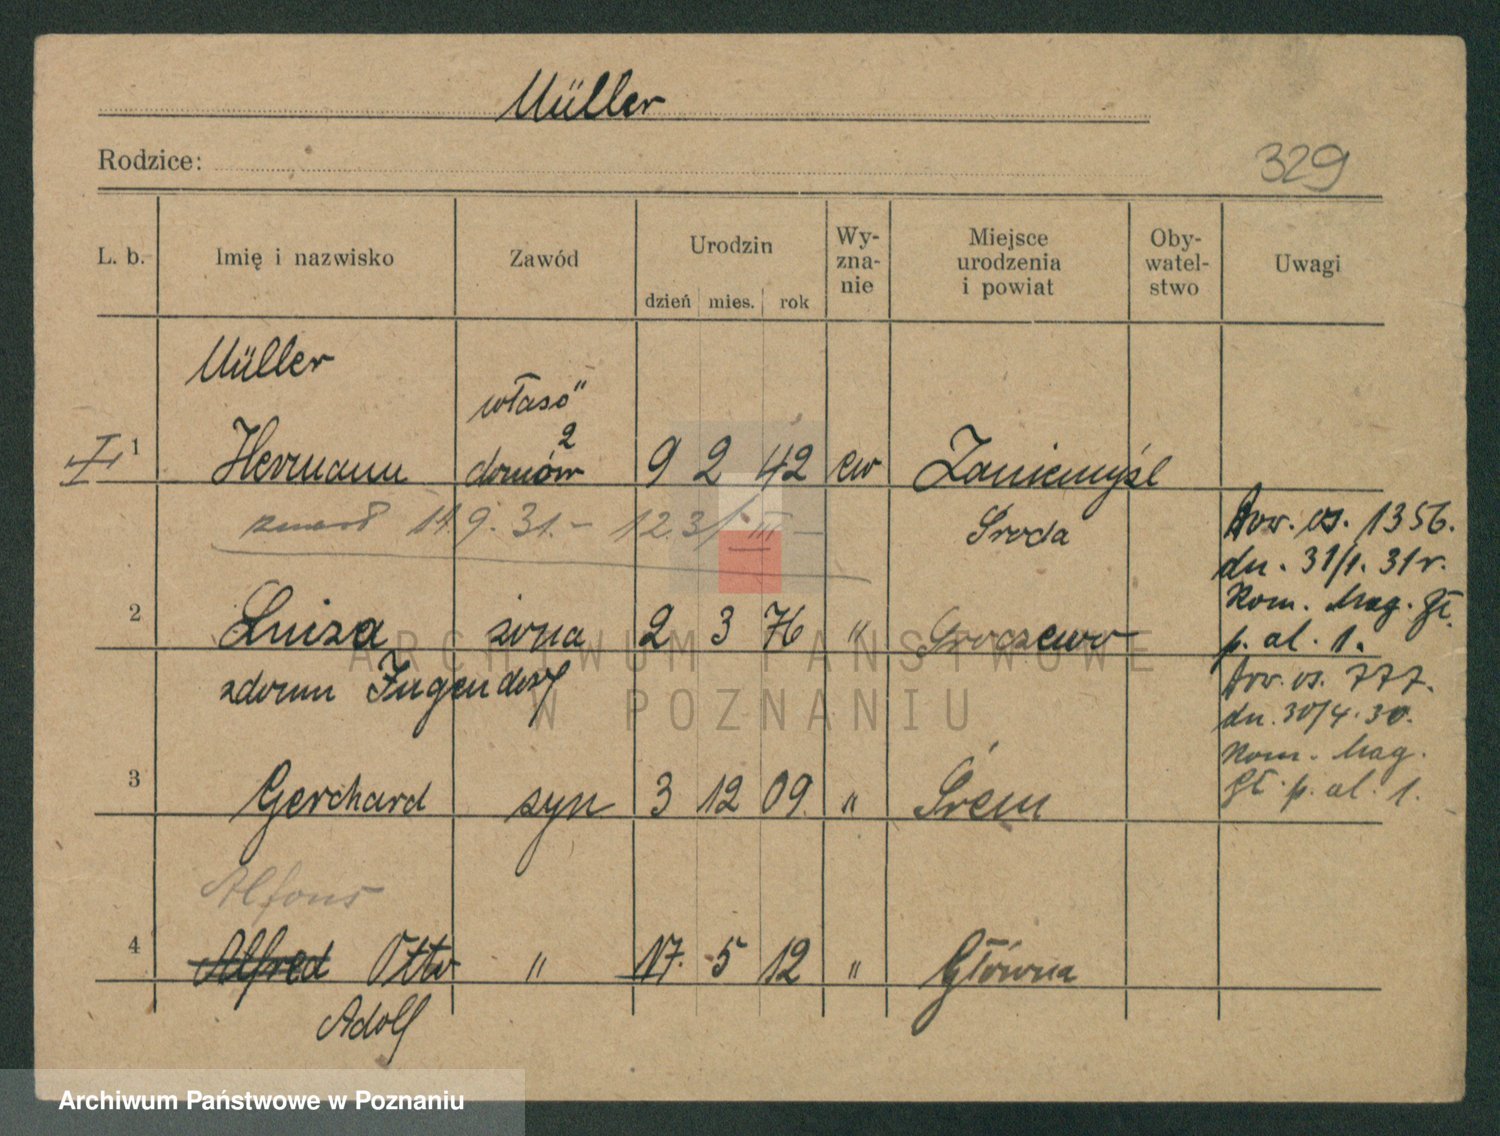 Müller
Rodzice:
329
L. b.
Imię i nazwisko
Zawód
Urodzin
dzień
mies.
rok
Wy-
zna-
nie
Miejsce
urodzenia
i powiat
Oby-
watel-
stwo
Uwagi
Müller
własc"
2
I
1
Hermann
domów
9
2
42
ew
Zaniemyśl
zmarł 14.9.31.- 12.31/III -
Środa
Dow. os. 1356.
dn. 31/1. 31 r.
Kom. Mag. Gł.
p. al. 1.
2
Luiza
żona
2
3
76
"
Groczewo
zdomu Jugendorf
Dow. os. 777.
dn. 30/4. 30.
Kom. Mag.
Gł. p. al. 1.
3
Gerchard
syn
3
12
09.
"
Śrem
Alfons
4
Alfred Otto
"
17.
5
12
"
Główna
Adolf
ARCHIWUM PAŃSTWOWE
W POZNANIU
Archiwum Państwowe w Poznaniu